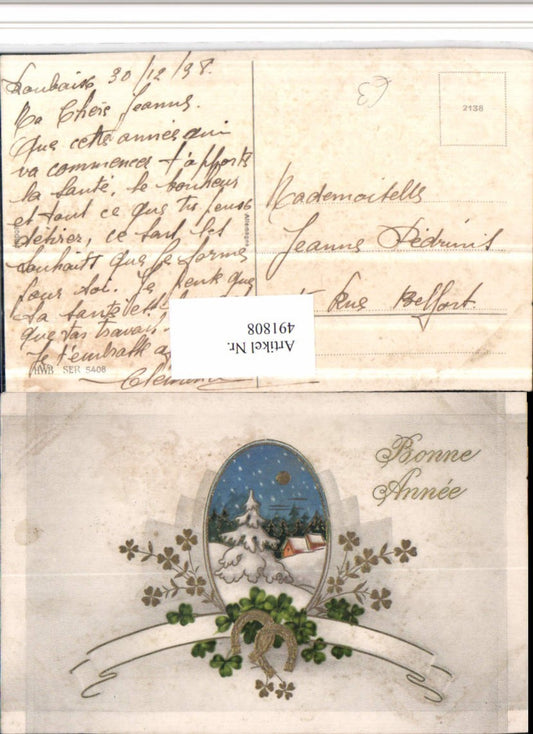 Roubaix 30/12/98.
Ma Chère Jeanne.
Que cette année qui
va commencer t'apporte
la santé, le bonheur
et tout ce que tu peux
désirer, ce sont les
souhaits que je forme
pour toi. Je veux que
ta santé
que tas travail
Je t'embrasse
HWB SER 5408
Allemagne
2138
Mademoiselle
Jeanne
Rue Belfort.
Artikel Nr.
491808
Bonne
Année